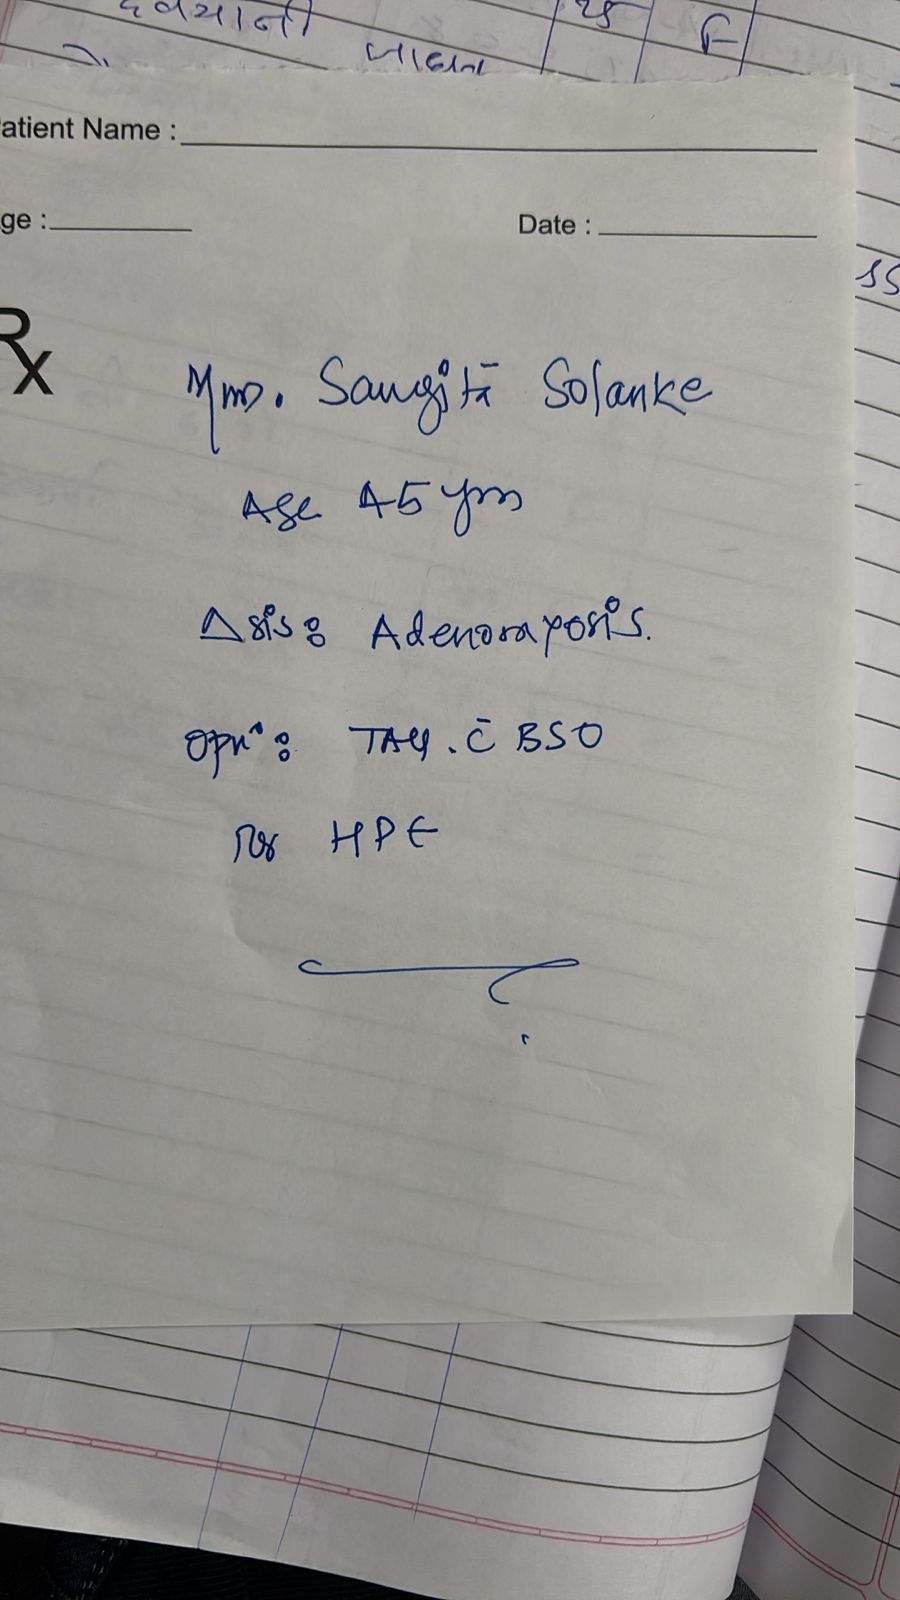 દેવયાની 25 F
Patient Name :
ge : Date :
Rx
Mrs. Sangita Solanke
Age 45 yrs
Δsis: Adenomyosis.
Opnⁿ: TAH. c̄ BSO
for HPE